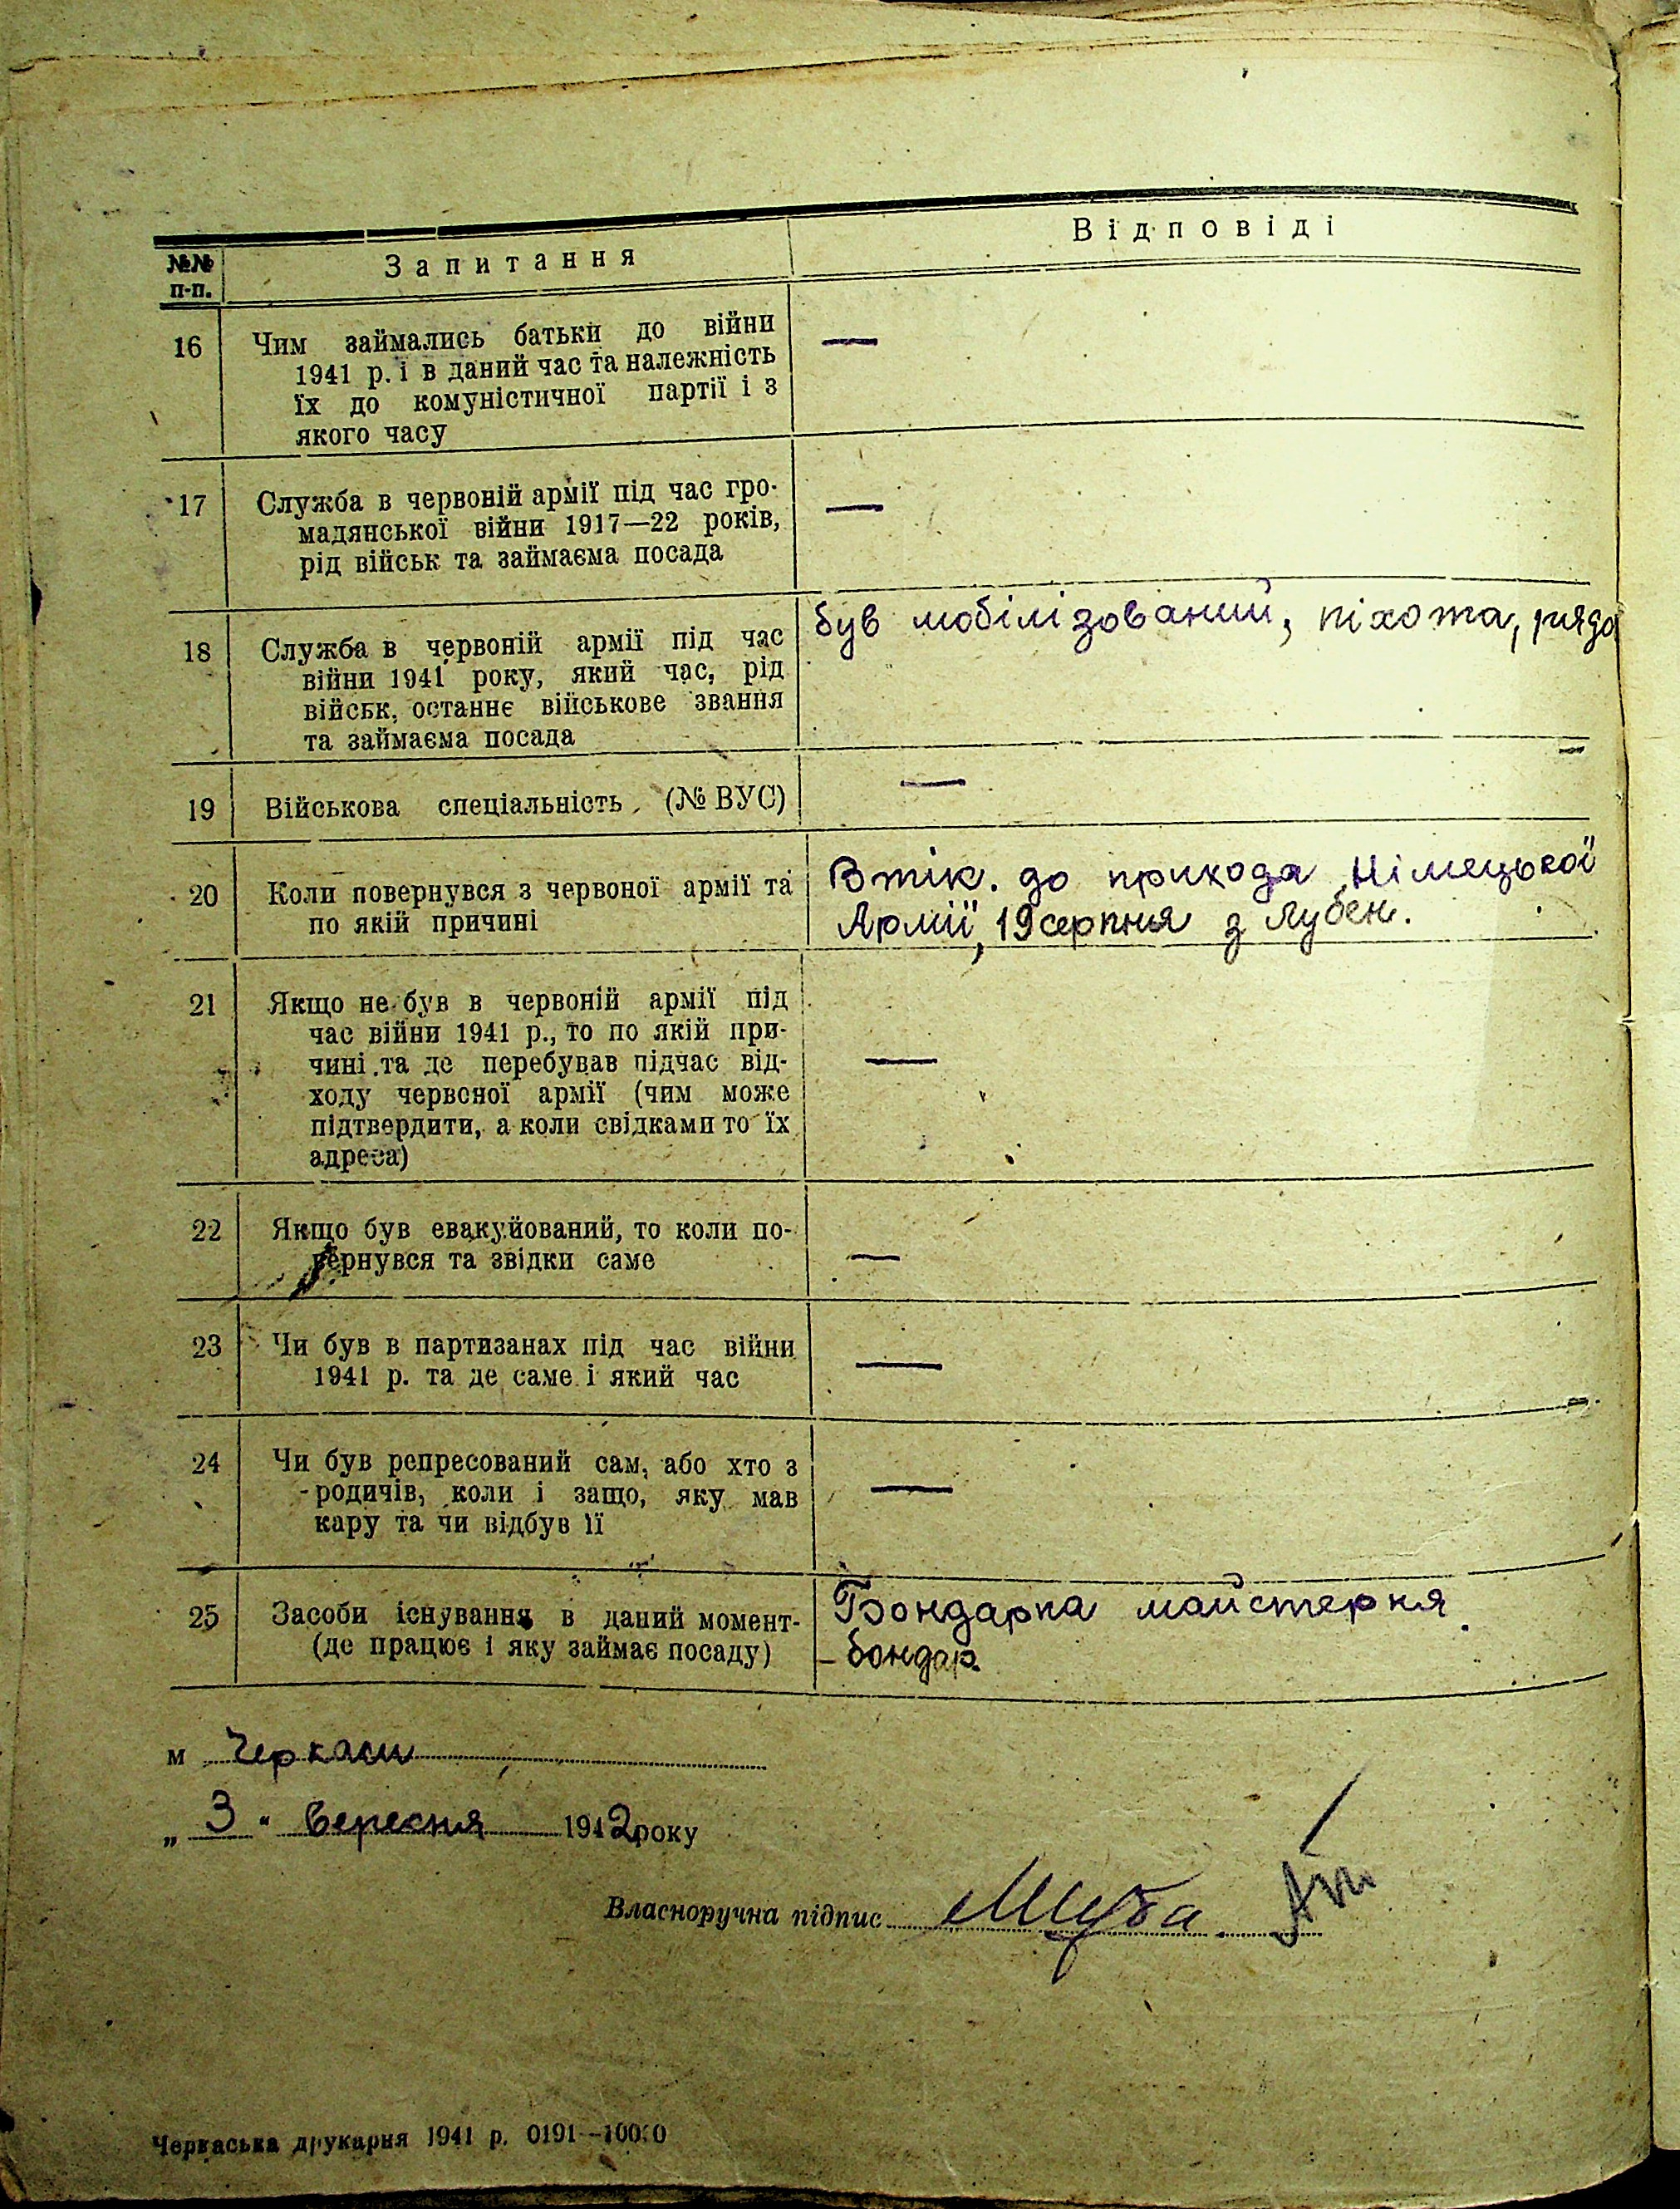 №№ п-п.
Запитання
Відповіді
16
Чим займались батьки до війни
1941 р. і в даний час та належність
їх до комуністичної партії і з
якого часу
—
17
Служба в червоній армії під час гро-
мадянської війни 1917—22 років,
рід військ та займаєма посада
—
18
Служба в червоній армії під час
війни 1941 року, який час, рід
військ, останнє військове звання
та займаєма посада
був мобілізований, піхота, рядо
19
Військова спеціальність (№ ВУС)
—
20
Коли повернувся з червоної армії та
по якій причині
Втік. до прихода Німецької
Армії, 19 серпня з Лубен.
21
Якщо не був в червоній армії під
час війни 1941 р., то по якій при-
чині та де перебував підчас від-
ходу червоної армії (чим може
підтвердити, а коли свідками то їх
адреса)
—
22
Якщо був евакуйований, то коли по-
вернувся та звідки саме
—
23
Чи був в партизанах під час війни
1941 р. та де саме і який час
—
24
Чи був репресований сам, або хто з
родичів, коли і защо, яку мав
кару та чи відбув її
—
25
Засоби існування в даний момент-
(де працює і яку займає посаду)
Бондарна майстерня
- бондар.
м Черкаси
„ 3 " вересня 1942 року
Власноручна підпис
Черкаська друкарня 1941 р. 0191--10000